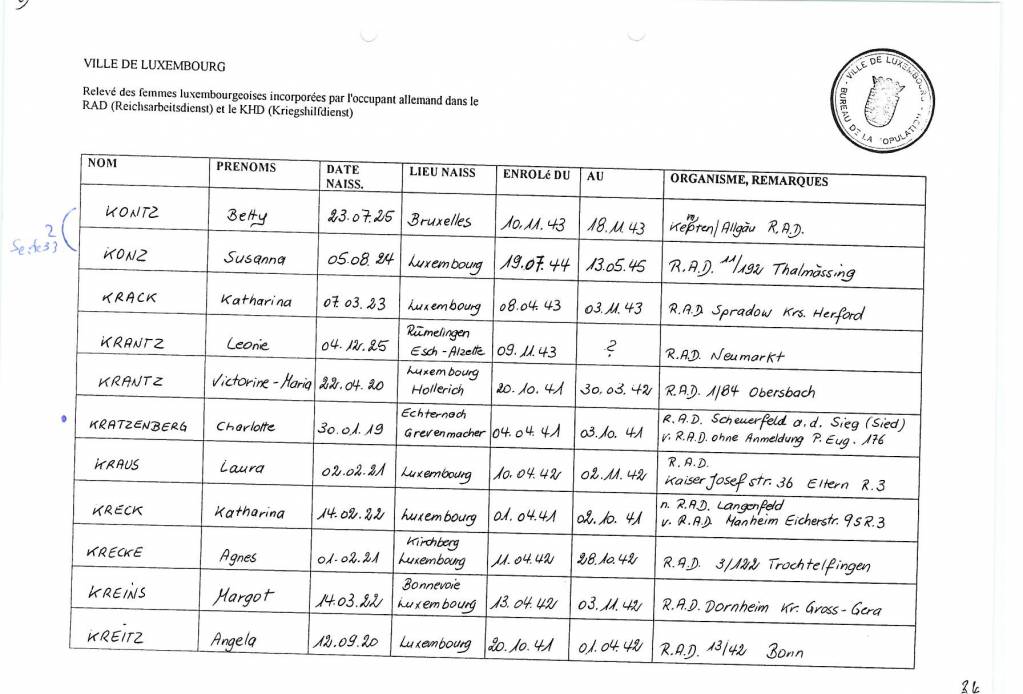 VILLE DE LUXEMBOURG
Relevé des femmes luxembourgeoises incorporées par l'occupant allemand dans le
RAD (Reichsarbeitsdienst) et le KHD (Kriegshilfdienst)
VILLE DE LUXEMBOURG
BUREAU DE LA POPULATION
NOM PRENOMS DATE NAISS. LIEU NAISS ENROLé DU AU ORGANISME, REMARQUES
2
Seite 33
KONTZ Betty 23.07.25 Bruxelles 10.11.43 18.11.43 Kempten/Allgäu R.A.D.
KONZ Susanna 05.08.24 Luxembourg 19.07.44 13.05.45 R.A.D. 11/192 Thalmässing
KRACK Katharina 07.03.23 Luxembourg 08.04.43 03.11.43 R.A.D Spradow Krs. Herford
KRANTZ Leonie 04.12.25 Rümelingen Esch-Alzette 09.11.43 ? R.A.D. Neumarkt
KRANTZ Victorine-Maria 22.04.20 Luxembourg Hollerich 20.10.41 30.03.42 R.A.D. 1/84 Obersbach
KRATZENBERG Charlotte 30.01.19 Echternach Grevenmacher 04.04.41 03.10.41 R.A.D. Scheuerfeld a.d. Sieg (Sied)
v. R.A.D. ohne Anmeldung P. Eug. 176
KRAUS Laura 02.02.21 Luxembourg 10.04.42 02.11.42 R.A.D.
Kaiser Josef str. 36 Eltern R.3
KRECK Katharina 14.02.22 Luxembourg 01.04.41 02.10.41 n. R.A.D. Langenfeld
v. R.A.D. Manheim Eicherstr. 95 R.3
KRECKE Agnes 01.02.21 Kirchberg Luxembourg 11.04.42 28.10.42 R.A.D. 3/122 Trochtelfingen
KREINS Margot 14.03.22 Bonnevoie Luxembourg 13.04.42 03.11.42 R.A.D. Dornheim Kr. Gross-Gera
KREITZ Angela 12.09.20 Luxembourg 20.10.41 01.04.42 R.A.D. 13/42 Bonn